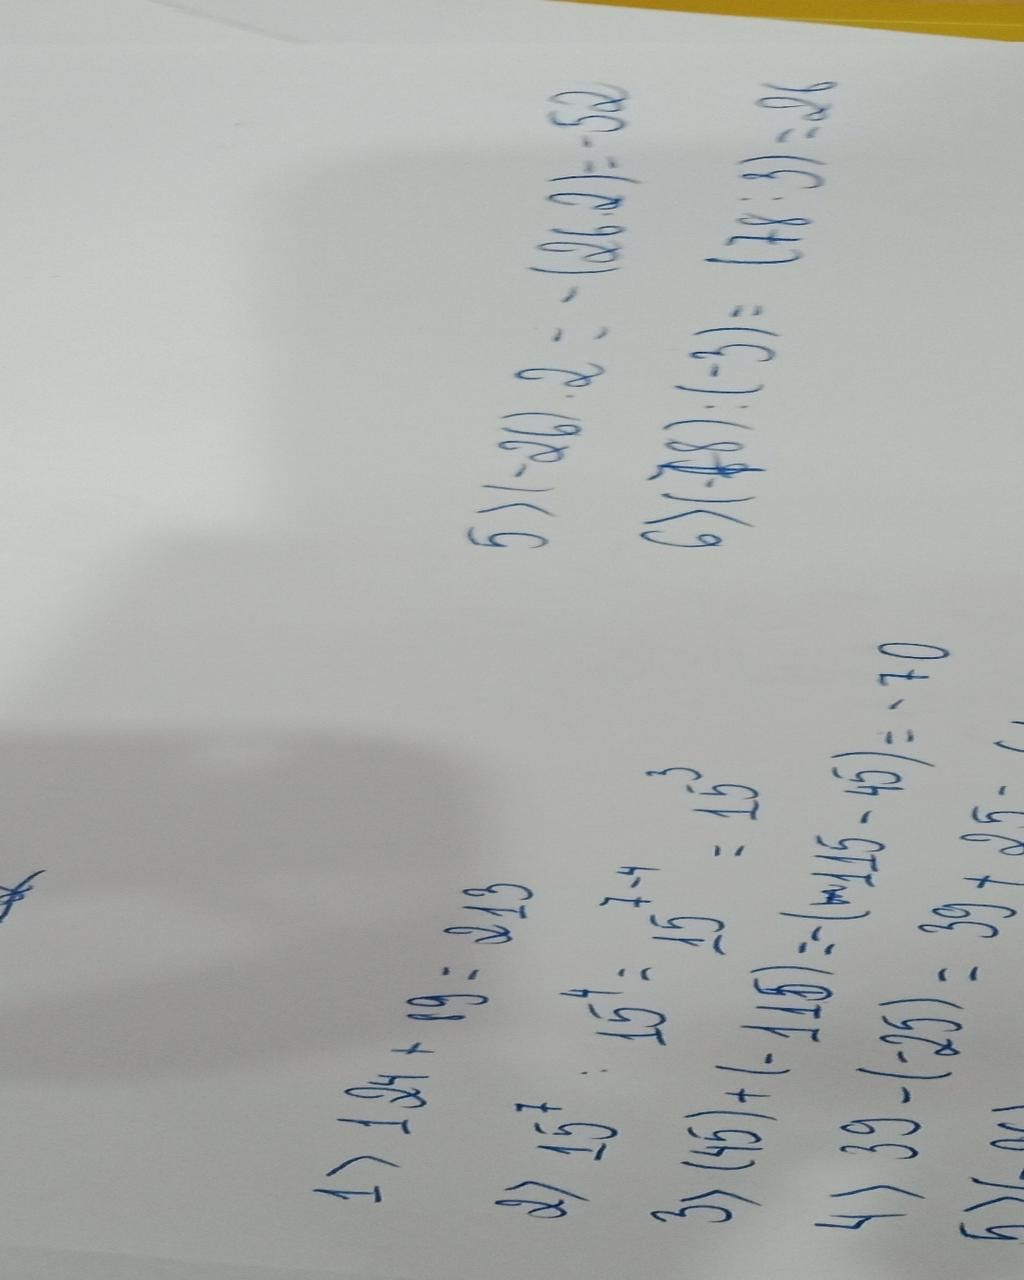 1) 124 + 89 = 213
2) 15⁷ : 15⁴ = 15⁷⁻⁴ = 15³
3) (45) + (-115) = -(115 - 45) = -70
4) 39 - (-25) = 39 + 25 =
5) (-26) · 2 = -(26·2) = -52
6) (-78) : (-3) = (78 : 3) = 26